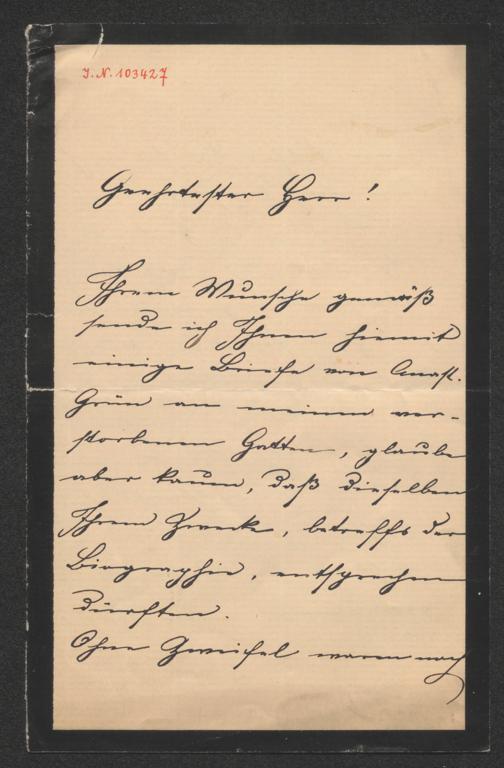 J. N. 103427
Geehrtester Herr!
Ihrem Wunsche gemäß
sende ich Ihnen hiemit
einige Briefe von Anast.
Grün an meinen ver-
storbenen Gatten, glaube
aber kaum, daß dieselben
Ihrem Zwecke, betreffs der
Biographie, entsprechen
dürften.
Ohne Zweifel waren noch